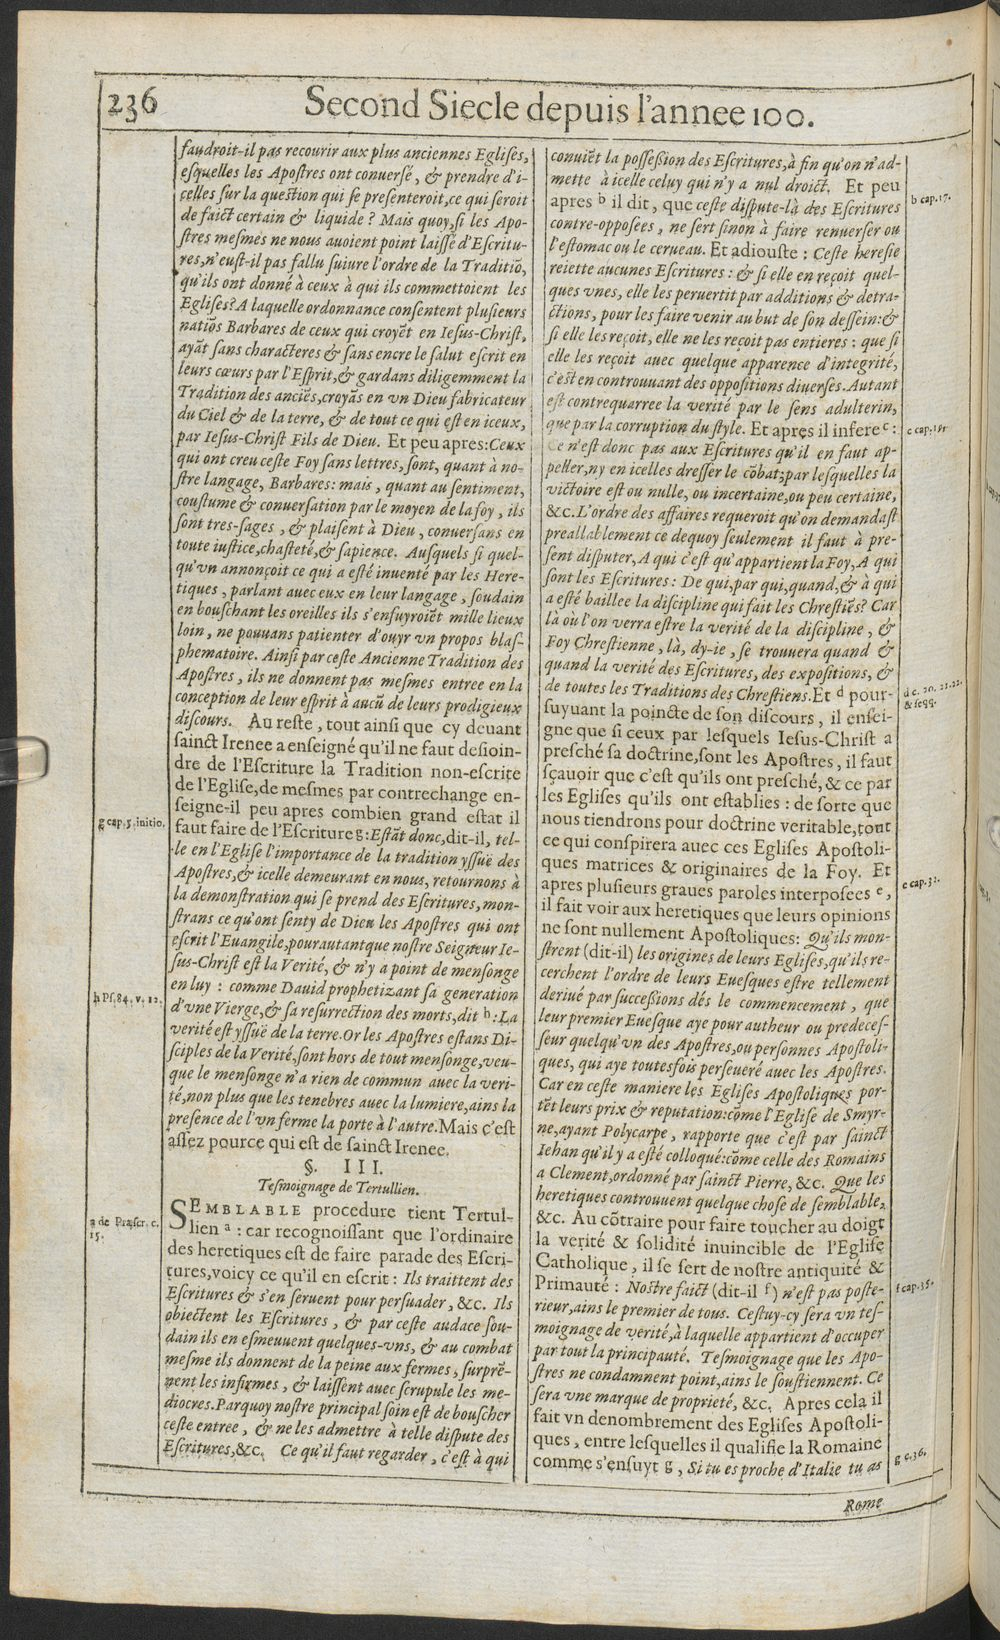 236
Second Siecle depuis l'annee 100.
faudroit-il pas recourir aux plus anciennes Egliſes,
eſquelles les Apoſtres ont conuerſé, & prendre d'i-
celles ſur la queſtion qui ſe preſenteroit, ce qui ſeroit
de faict certain & liquide? Mais quoy, ſi les Apo-
ſtres meſmes ne nous auoient point laiſſé d'Eſcritu-
res, n'euſt-il pas fallu ſuiure l'ordre de la Traditiõ,
qu'ils ont donné à ceux à qui ils commettoient les
Egliſes? A laquelle ordonnance conſentent pluſieurs
natiõs Barbares de ceux qui croyẽt en Ieſus-Chriſt,
ayãt ſans characteres & ſans encre le ſalut eſcrit en
leurs cœurs par l'Eſprit, & gardans diligemment la
Tradition des anciẽs, croyãs en vn Dieu fabricateur
du Ciel & de la terre, & de tout ce qui eſt en iceux,
par Ieſus-Chriſt Fils de Dieu. Et peu apres: Ceux
qui ont creu ceſte Foy ſans lettres, ſont, quant à no-
ſtre langage, Barbares: mais, quant au ſentiment,
couſtume & conuerſation par le moyen de la foy, ils
ſont tres-ſages, & plaiſent à Dieu, conuerſans en
toute iuſtice, chaſteté, & ſapience. Auſquels ſi quel-
qu'vn annonçoit ce qui a eſté inuenté par les Here-
tiques, parlant auec eux en leur langage, ſoudain
en bouſchant les oreilles ils s'enfuyroiẽt mille lieux
loin, ne pouuans patienter d'ouyr vn propos blaſ-
phematoire. Ainſi par ceſte Ancienne Tradition des
Apoſtres, ils ne donnent pas meſmes entree en la
conception de leur eſprit à aucũ de leurs prodigieux
diſcours. Au reſte, tout ainſi que cy deuant
ſainct Irenee a enſeigné qu'il ne faut deſioin-
dre de l'Eſcriture la Tradition non-eſcrite
de l'Egliſe, de meſmes par contrechange en-
ſeigne-il peu apres combien grand eſtat il
faut faire de l'Eſcriture g: Eſtãt donc, dit-il, tel-
le en l'Egliſe l'importance de la tradition yſſuë des
Apoſtres, & icelle demeurant en nous, retournons à
la demonſtration qui ſe prend des Eſcritures, mon-
ſtrans ce qu'ont ſenty de Dieu les Apoſtres qui ont
eſcrit l'Euangile, pourautant que noſtre Seigneur Ie-
ſus-Chriſt eſt la Verité, & n'y a point de menſonge
en luy: comme Dauid prophetizant ſa generation
d'vne Vierge, & ſa reſurrection des morts, dit h: La
verité eſt yſſuë de la terre. Or les Apoſtres eſtans Di-
ſciples de la Verité, ſont hors de tout menſonge, veu-
que le menſonge n'a rien de commun auec la veri-
té, non plus que les tenebres auec la lumiere, ains la
preſence de l'vn ferme la porte à l'autre. Mais c'eſt
aſſez pource qui eſt de ſainct Irenee.
§. III.
Teſmoignage de Tertullien.
SEMBLABLE procedure tient Tertul-
lien a: car recognoiſſant que l'ordinaire
des heretiques eſt de faire parade des Eſcri-
tures, voicy ce qu'il en eſcrit: Ils traittent des
Eſcritures & s'en ſeruent pour perſuader, &c. Ils
obiectent les Eſcritures, & par ceſte audace ſou-
dain ils en eſmeuuent quelques-vns, & au combat
meſme ils donnent de la peine aux fermes, ſurprẽ-
nent les infirmes, & laiſſent auec ſcrupule les me-
diocres. Parquoy noſtre principal ſoin eſt de bouſcher
ceſte entree, & ne les admettre à telle diſpute des
Eſcritures, &c. Ce qu'il faut regarder, c'eſt à qui
g cap. 5. initio.
h Pſ. 84. v. 12.
a de Præſcr. c.
15.
conuiẽt la poſſeſſion des Eſcritures, à fin qu'on n'ad-
mette à icelle celuy qui n'y a nul droict. Et peu
apres b il dit, que ceſte diſpute-là des Eſcritures
contre-oppoſees, ne ſert ſinon à faire renuerſer ou
l'eſtomac ou le cerueau. Et adiouſte: Ceſte hereſie
reiette aucunes Eſcritures: & ſi elle en reçoit quel-
ques vnes, elle les peruertit par additions & detra-
ctions, pour les faire venir au but de ſon deſſein: &
ſi elle les reçoit, elle ne les reçoit pas entieres: que ſi
elle les reçoit auec quelque apparence d'integrité,
c'eſt en controuuant des oppoſitions diuerſes. Autant
eſt contrequarree la verité par le ſens adulterin,
que par la corruption du ſtyle. Et apres il infere c:
Ce n'eſt donc pas aux Eſcritures qu'il en faut ap-
peller, ny en icelles dreſſer le cõbat; par leſquelles la
victoire eſt ou nulle, ou incertaine, ou peu certaine,
&c. L'ordre des affaires requeroit qu'on demandaſt
preallablement ce dequoy ſeulement il faut à pre-
ſent diſputer, A qui c'eſt qu'appartient la Foy, A qui
ſont les Eſcritures: De qui, par qui, quand, & à qui
a eſté baillee la diſcipline qui fait les Chreſtiẽs? Car
là où l'on verra eſtre la verité de la diſcipline, &
Foy Chreſtienne, là, dy-ie, ſe trouuera quand &
quand la verité des Eſcritures, des expoſitions, &
de toutes les Traditions des Chreſtiens. Et d pour-
ſuyuant la poincte de ſon diſcours, il enſei-
gne que ſi ceux par leſquels Ieſus-Chriſt a
preſché ſa doctrine, ſont les Apoſtres, il faut
ſçauoir que c'eſt qu'ils ont preſché, & ce par
les Egliſes qu'ils ont eſtablies: de ſorte que
nous tiendrons pour doctrine veritable, tout
ce qui conſpirera auec ces Egliſes Apoſtoli-
ques matrices & originaires de la Foy. Et
apres pluſieurs graues paroles interpoſees e,
il fait voir aux heretiques que leurs opinions
ne ſont nullement Apoſtoliques: Qu'ils mon-
ſtrent (dit-il) les origines de leurs Egliſes, qu'ils re-
cerchent l'ordre de leurs Eueſques eſtre tellement
deriué par ſucceſſions dés le commencement, que
leur premier Eueſque aye pour autheur ou predeceſ-
ſeur quelqu'vn des Apoſtres, ou perſonnes Apoſtoli-
ques, qui aye toutesfois perſeueré auec les Apoſtres.
Car en ceſte maniere les Egliſes Apoſtoliques por-
tẽt leurs prix & reputation: cõme l'Egliſe de Smyr-
ne, ayant Polycarpe, rapporte que c'eſt par ſainct
Iehan qu'il y a eſté colloqué: cõme celle des Romains
a Clement, ordonné par ſainct Pierre, &c. Que les
heretiques controuuent quelque choſe de ſemblable,
&c. Au cõtraire pour faire toucher au doigt
la verité & ſolidité inuincible de l'Egliſe
Catholique, il ſe ſert de noſtre antiquité &
Primauté: Noſtre faict (dit-il f) n'eſt pas poſte-
rieur, ains le premier de tous. Ceſtuy-cy ſera vn teſ-
moignage de verité, à laquelle appartient d'occuper
par tout la principauté. Teſmoignage que les Apo-
ſtres ne condamnent point, ains le ſouſtiennent. Ce
ſera vne marque de proprieté, &c. Apres cela il
fait vn denombrement des Egliſes Apoſtoli-
ques, entre leſquelles il qualifie la Romaine
comme s'enſuyt g, Si tu es proche d'Italie tu as
Rome
b cap. 17.
d c. 20. 21. 22.
& ſeqq.
e cap. 32.
f cap. 35.
g c. 36.